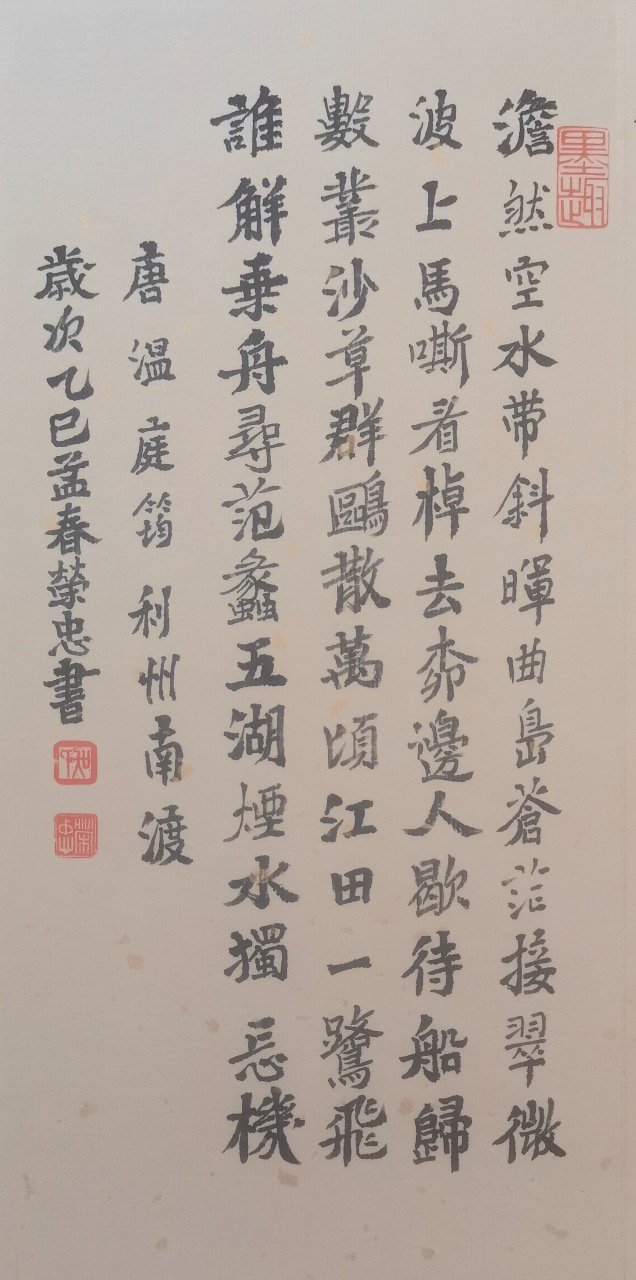 墨趣
澹然空水帶斜暉曲島蒼茫接翠微
波上馬嘶看棹去柳邊人歇待船歸
數叢沙草群鷗散萬頃江田一鷺飛
誰解乘舟尋范蠡五湖煙水獨忘機
唐温庭筠利州南渡
歲次乙巳孟春榮忠書
榮忠